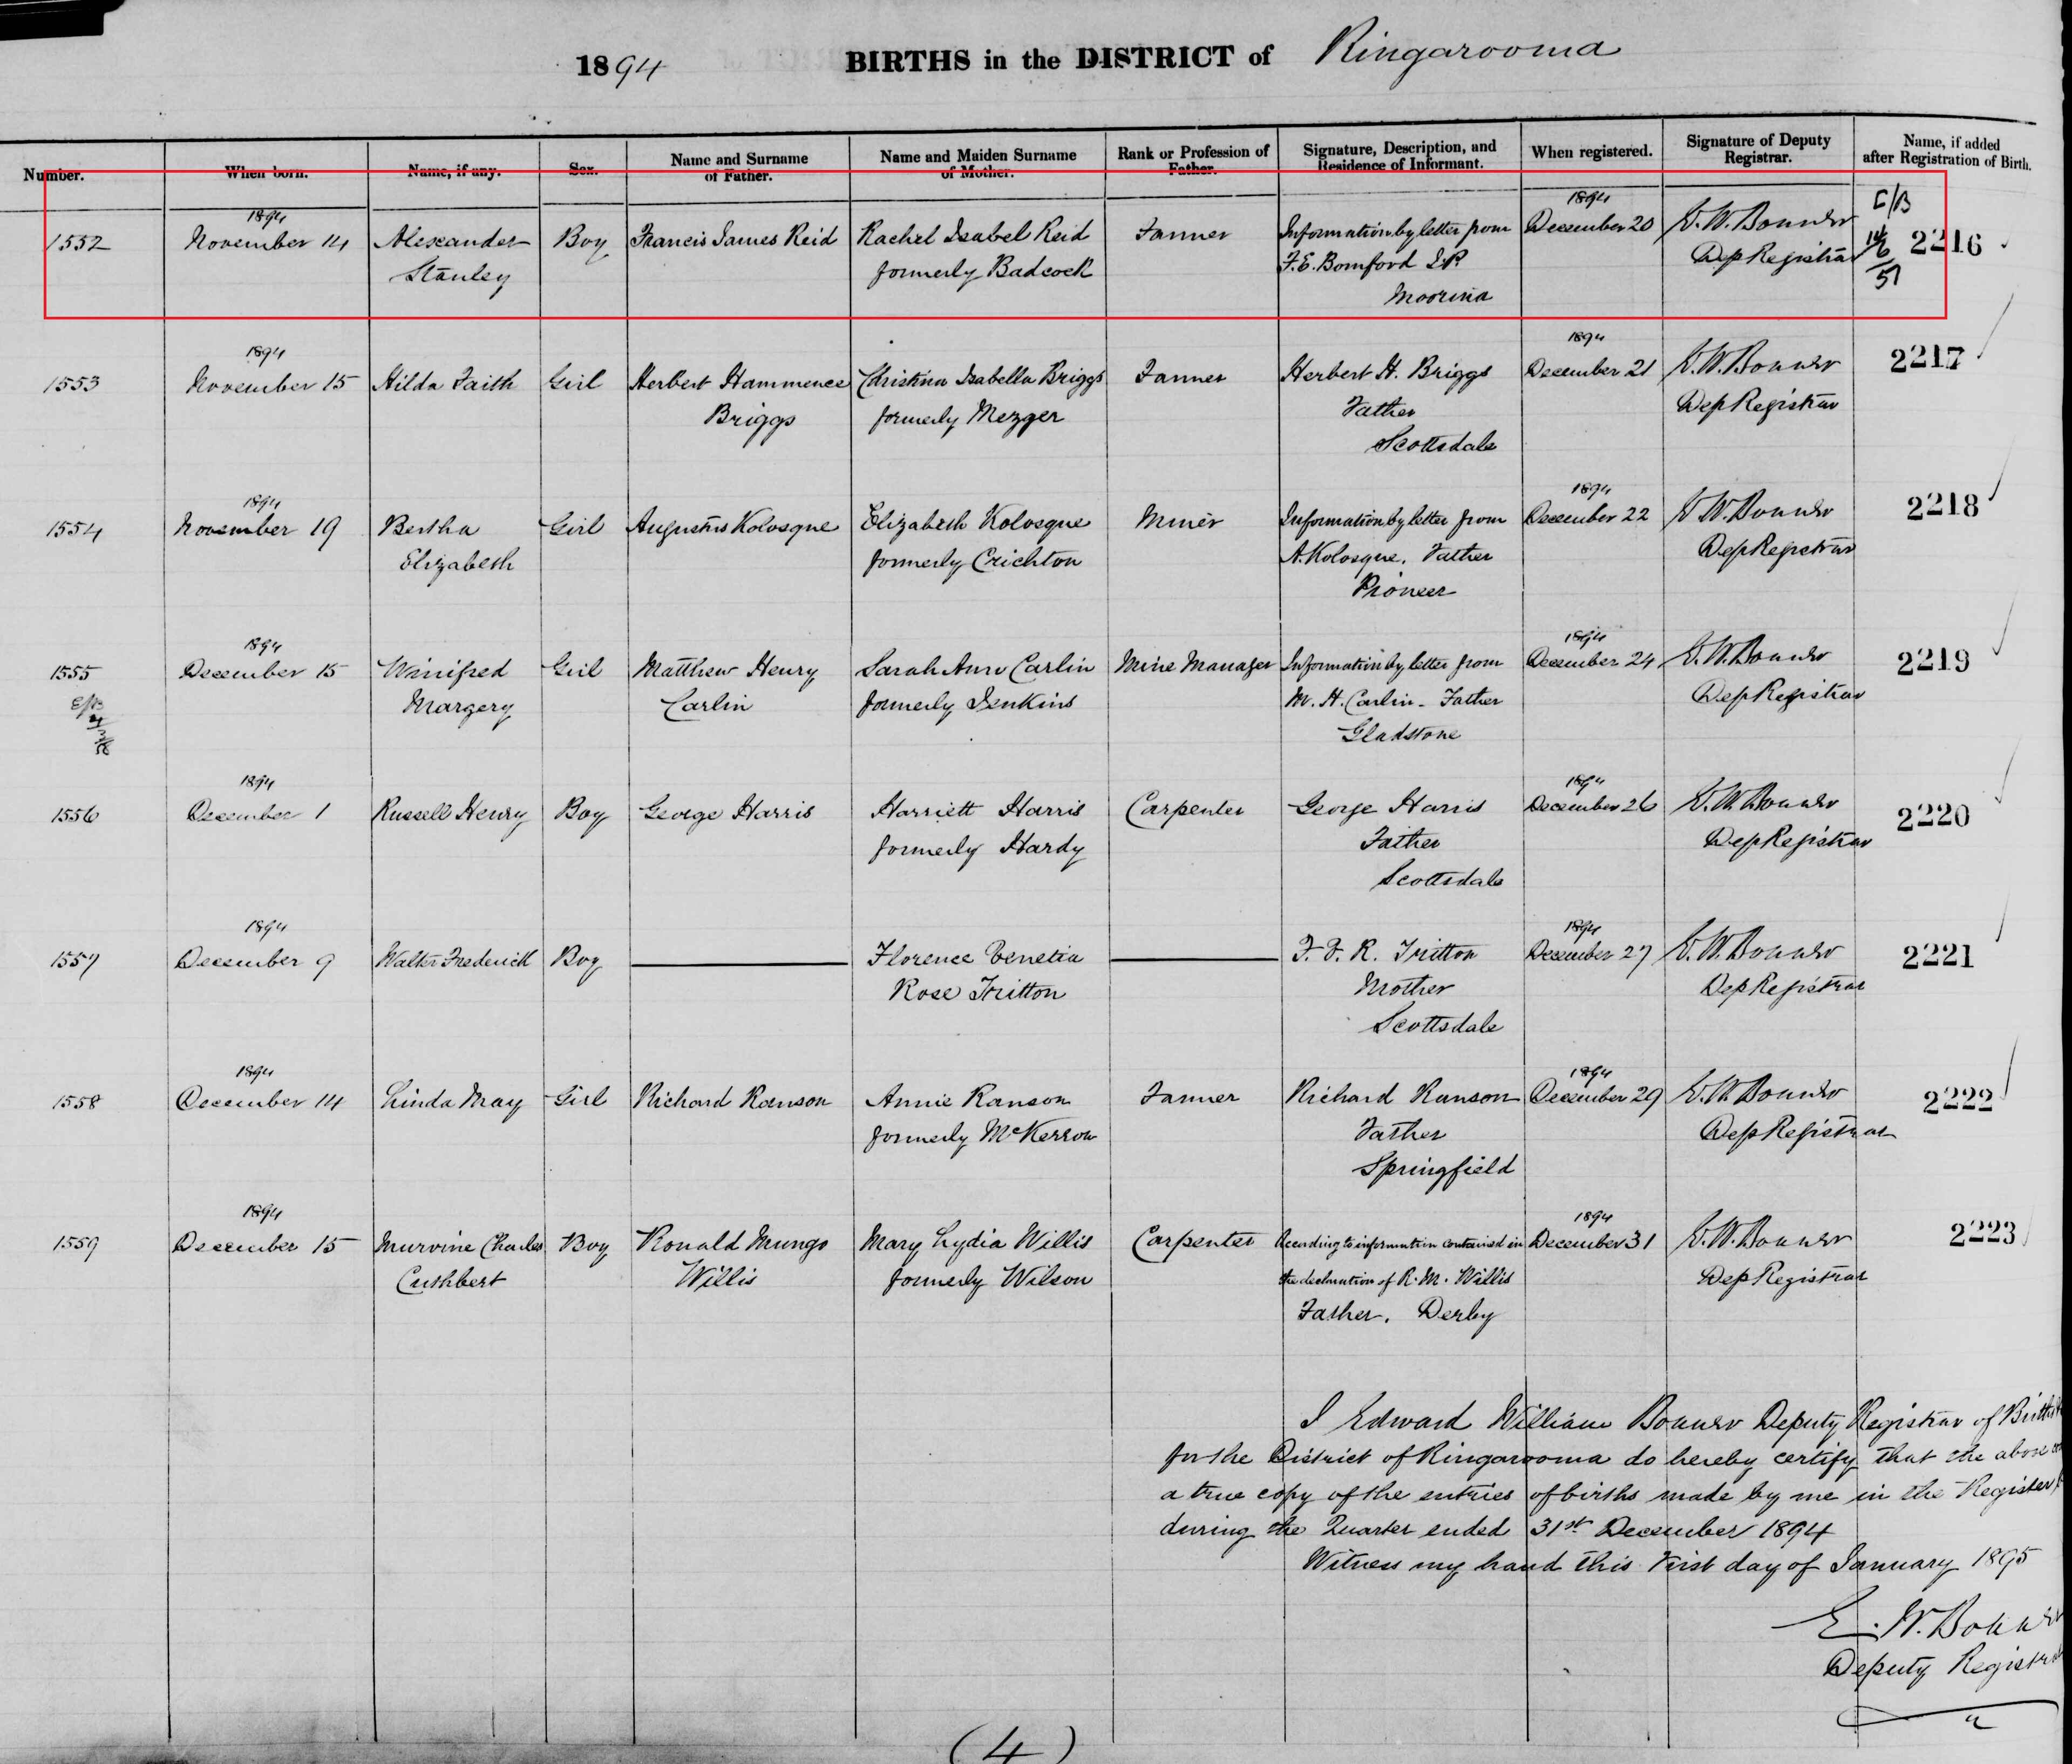 1894 BIRTHS in the DISTRICT of Ringarooma
Number. When born. Name, if any. Sex. Name and Surname of Father. Name and Maiden Surname of Mother. Rank or Profession of Father. Signature, Description, and Residence of Informant. When registered. Signature of Deputy Registrar. Name, if added after Registration of Birth.
1894 1894 C/B
1552 November 14 Alexander Boy Francis James Reid Rachel Isabel Reid Farmer Information by letter from December 20 E. W. Bonner 14/6/51 2216
Stanley formerly Badcock F. E. Bomford J.P. Dep Registrar
Moorina
1894 1894
1553 November 15 Hilda Faith Girl Herbert Hammence Christina Isabella Briggs Farmer Herbert H. Briggs December 21 E. W. Bonner 2217
Briggs formerly Mezger Father Dep Registrar
Scottsdale
1894 1894
1554 November 19 Bertha Girl Augustus Kolosque Elizabeth Kolosque Miner Information by letter from December 22 E. W. Bonner 2218
Elizabeth formerly Crichton A. Kolosque, Father Dep Registrar
Pioneer
1894 1894
1555 December 15 Winifred Girl Matthew Henry Sarah Ann Carlin Mine Manager Information by letter from December 24 E. W. Bonner 2219
Margery Carlin formerly Jenkins M. H. Carlin - Father Dep Registrar
Gladstone
1894 1894
1556 December 1 Russell Henry Boy George Harris Harriett Harris Carpenter George Harris December 26 E. W. Bonner 2220
formerly Hardy Father Dep Registrar
Scottsdale
1894 1894
1557 December 9 Walter Frederick Boy Florence Venetia F. F. R. Tritton December 27 E. W. Bonner 2221
Rose Tritton Mother Dep Registrar
Scottsdale
1894 1894
1558 December 14 Linda May Girl Richard Ranson Annie Ranson Farmer Richard Ranson December 29 E. W. Bonner 2222
formerly McKerrow Father Dep Registrar
Springfield
1894 1894
1559 December 15 Murvine Charles Boy Ronald Mungo Mary Lydia Willis Carpenter According to information contained in December 31 E. W. Bonner 2223
Cuthbert Willis formerly Wilson the declaration of R. M. Willis Dep Registrar
Father, Derby
I Edward William Bonner Deputy Registrar of Births
for the District of Ringarooma do hereby certify that the above
a true copy of the entries of births made by me in the Register
during the Quarter ended 31st December 1894
Witness my hand this First day of January 1895
E. W. Bonner
Deputy Registrar
(4)